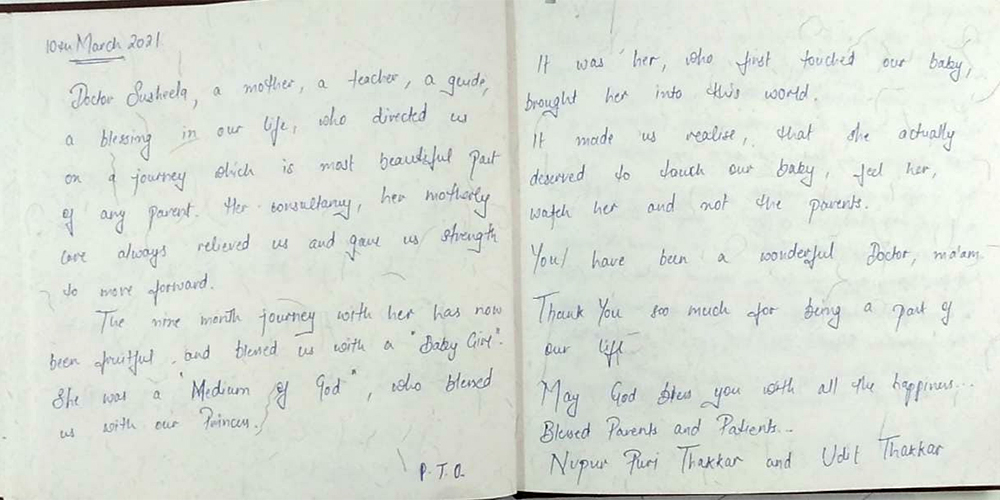 10th March 2021
Doctor Susheela, a mother, a teacher, a guide,
a blessing in our life, who directed us
on a journey which is most beautiful part
of any parent. Her consultancy, her motherly
care always relieved us and gave us strength
to move forward.
The nine month journey with her has now
been fruitful and blessed us with a "Baby Girl".
She was a "Medium of God", who blessed
us with our Princess.
P.T.O.
It was her, who first touched our baby,
brought her into this world.
It made us realise, that she actually
deserved to touch our baby, feel her,
watch her and not the parents.
You have been a wonderful Doctor, ma'am
Thank You soo much for being a part of
our life
May God bless you with all the happiness...
Blessed Parents and Patients...
Nupur Puri Thakkar and Udit Thakkar